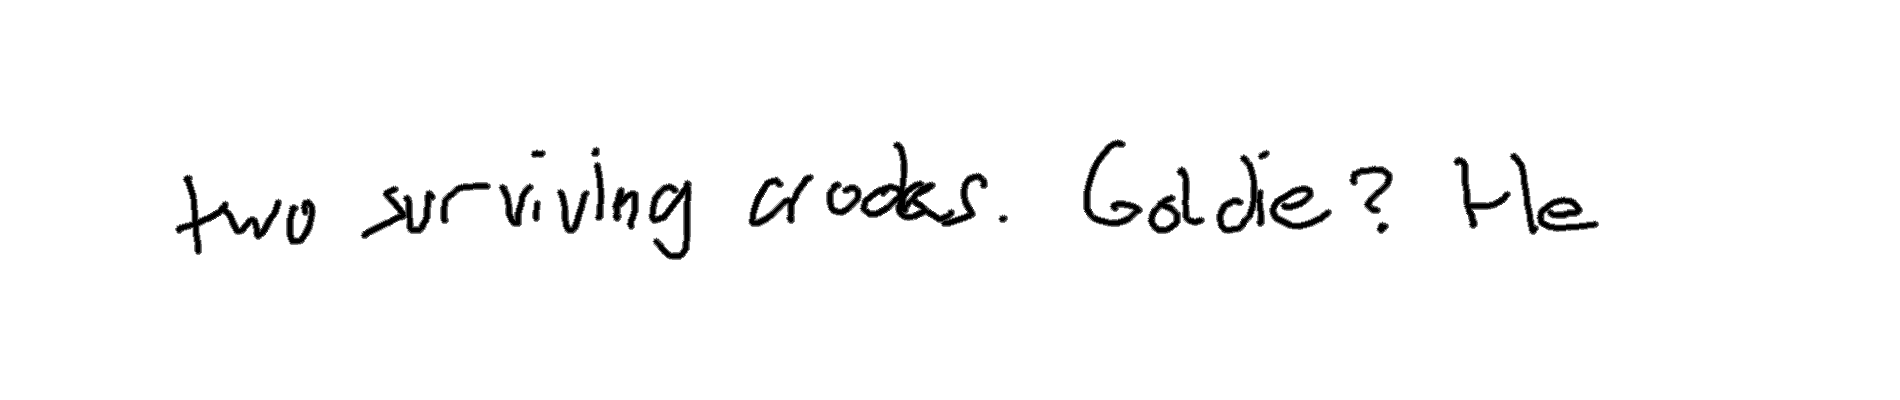 two surviving crooks. Goldie? He